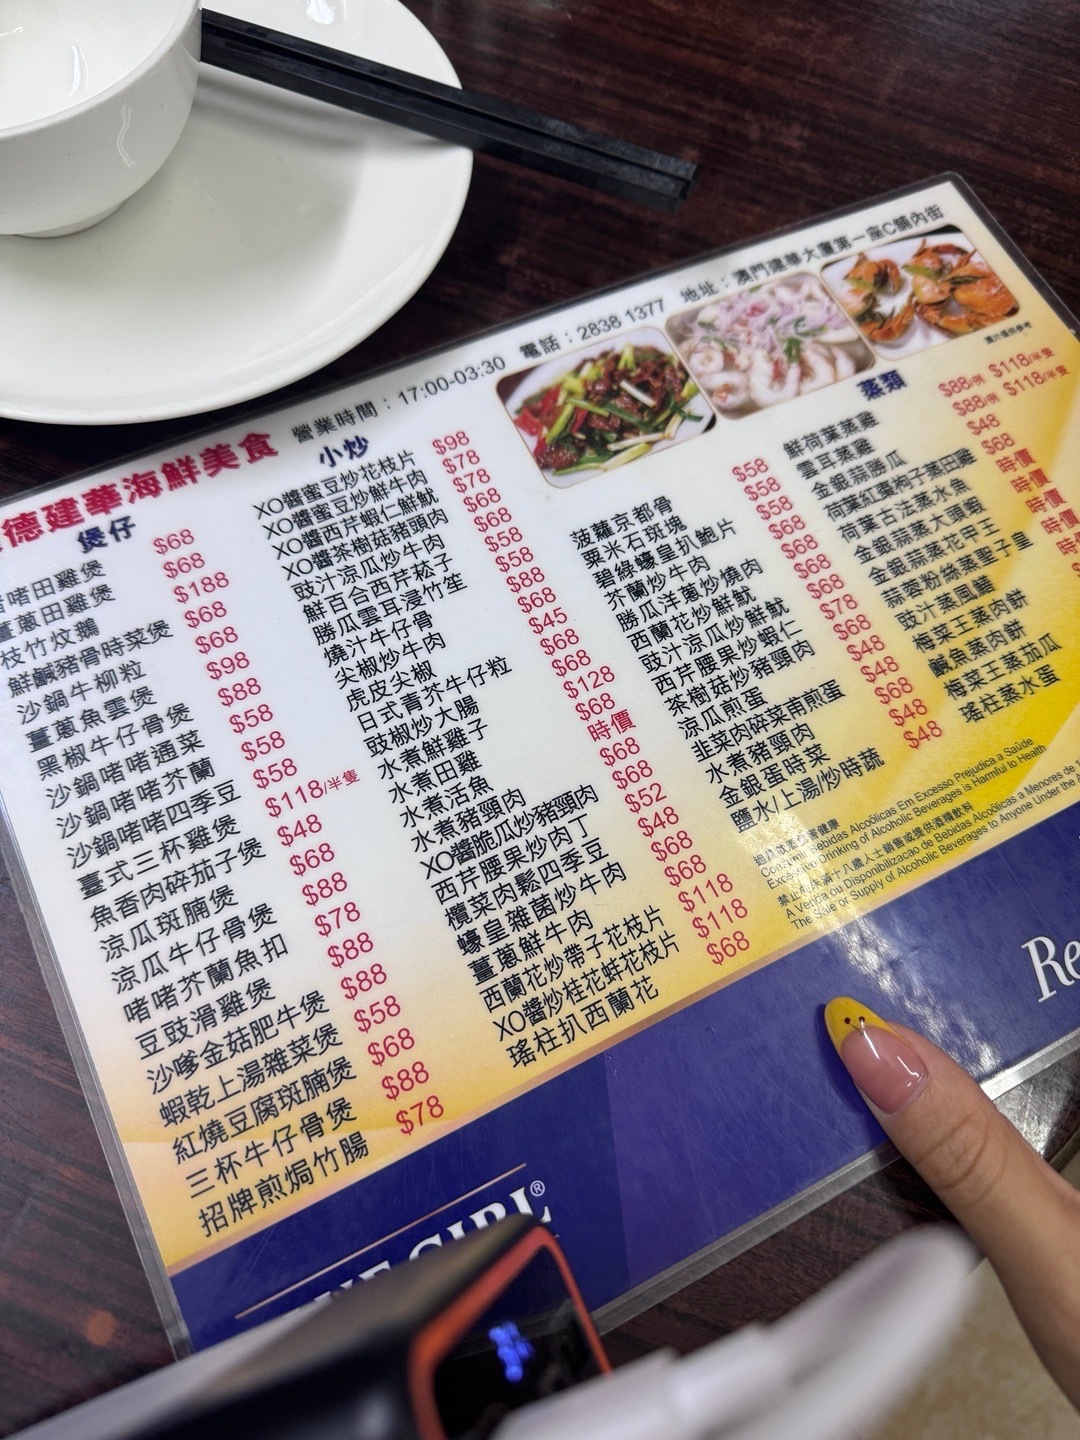 德建華海鮮美食 營業時間：17:00-03:30 電話：2838 1377 地址：澳門建華大廈第一座C舖內街
圖片僅供參考
煲仔
啫田雞煲 $68
薑蔥田雞煲 $68
枝竹炆鵝 $188
鮮鹹豬骨時菜煲 $68
沙鍋牛柳粒 $68
薑蔥魚雲煲 $98
黑椒牛仔骨煲 $88
沙鍋啫啫通菜 $58
沙鍋啫啫芥蘭 $58
沙鍋啫啫四季豆 $58
臺式三杯雞煲 $118/半隻
魚香肉碎茄子煲 $48
涼瓜斑腩煲 $68
涼瓜牛仔骨煲 $88
啫啫芥蘭魚扣 $78
豆豉滑雞煲 $88
沙嗲金菇肥牛煲 $88
蝦乾上湯雜菜煲 $58
紅燒豆腐斑腩煲 $68
三杯牛仔骨煲 $88
招牌煎焗竹腸 $78
小炒
XO醬蜜豆炒花枝片 $98
XO醬蜜豆炒鮮牛肉 $78
XO醬西芹蝦仁鮮魷 $78
XO醬茶樹菇豬頸肉 $68
豉汁涼瓜炒牛肉 $68
鮮百合西芹菘子 $58
勝瓜雲耳浸竹笙 $58
燒汁牛仔骨 $88
尖椒炒牛肉 $68
虎皮尖椒 $45
日式青芥牛仔粒 $68
豉椒炒大腸 $68
水煮鮮雞子 $128
水煮田雞 $68
水煮活魚 時價
水煮豬頸肉 $68
XO醬脆瓜炒豬頸肉 $68
西芹腰果炒肉丁 $52
欖菜肉鬆四季豆 $48
蠔皇雜菌炒牛肉 $68
薑蔥鮮牛肉 $68
西蘭花炒帶子花枝片 $118
XO醬炒桂花蚌花枝片 $118
瑤柱扒西蘭花 $68
菠蘿京都骨 $58
粟米石斑塊 $58
碧綠蠔皇扒鮑片 $58
芥蘭炒牛肉 $68
勝瓜洋蔥炒燒肉 $68
西蘭花炒鮮魷 $68
豉汁涼瓜炒鮮魷 $68
西芹腰果炒蝦仁 $78
茶樹菇炒豬頸肉 $68
涼瓜煎蛋 $48
韮菜肉碎菜甫煎蛋 $48
水煮豬頸肉 $68
金銀蛋時菜 $48
鹽水/上湯炒時蔬 $48
蒸類
鮮荷葉蒸雞 $88/例 $118/半隻
雲耳蒸雞 $88/例 $118/半隻
金銀蒜勝瓜 $48
荷葉紅棗枸子蒸田雞 $68
荷葉古法蒸水魚 時價
金銀蒜蒸大頭蝦 時價
金銀蒜蒸花甲王 時價
蒜蓉粉絲蒸聖子皇 時價
豉汁蒸風鱔 時
梅菜王蒸肉餅
鹹魚蒸肉餅
梅菜王蒸茄瓜
瑤柱蒸水蛋
過量飲酒危害健康
Consumir Bebidas Alcoólicas Em Excesso Prejudica a Saúde
Excessive Drinking of Alcoholic Beverages is Harmful to Health
禁止向未滿十八歲人士銷售或提供酒精飲料
A Venda ou Disponibilizacao de Bebidas Alcoólicas a Menores de
The Sale or Supply of Alcoholic Beverages to Anyone Under the
Re
GIRL®